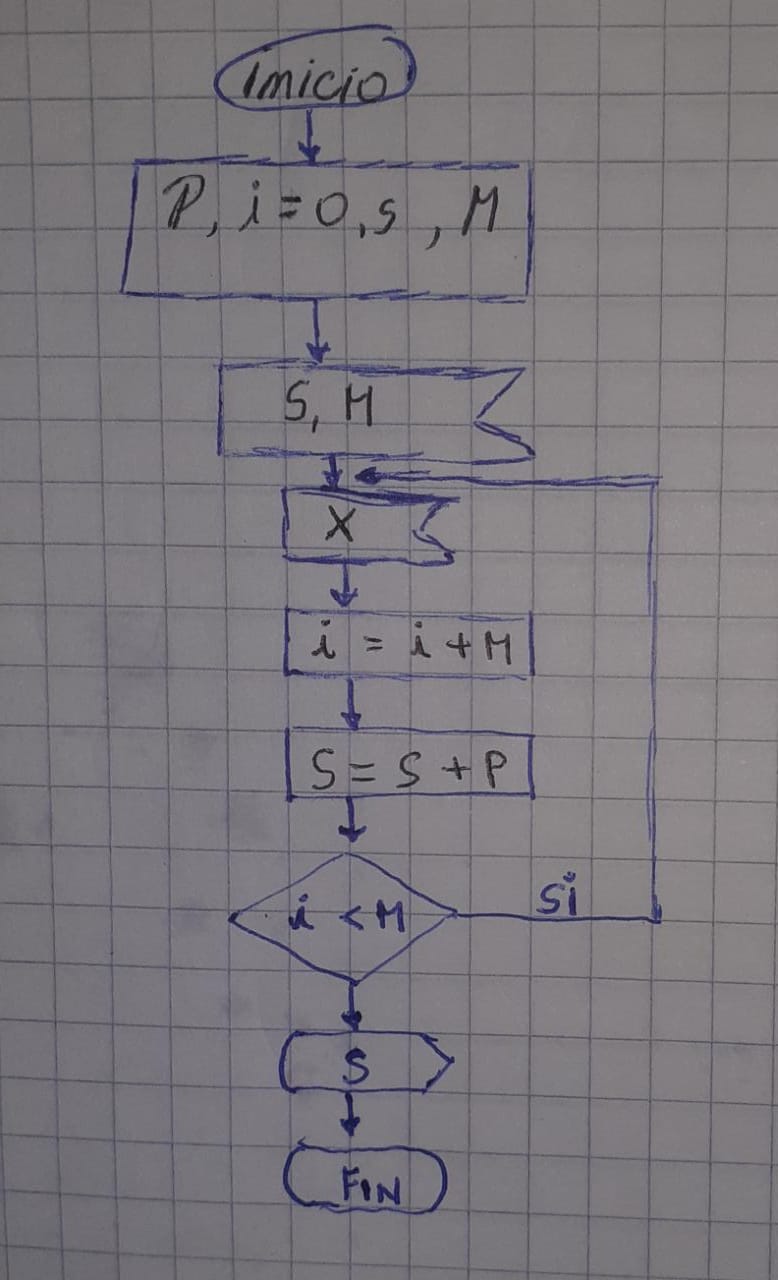 Inicio
P, i = 0, s, M
S, M
X
i = i + M
S = S + P
i < M
Si
S
FIN